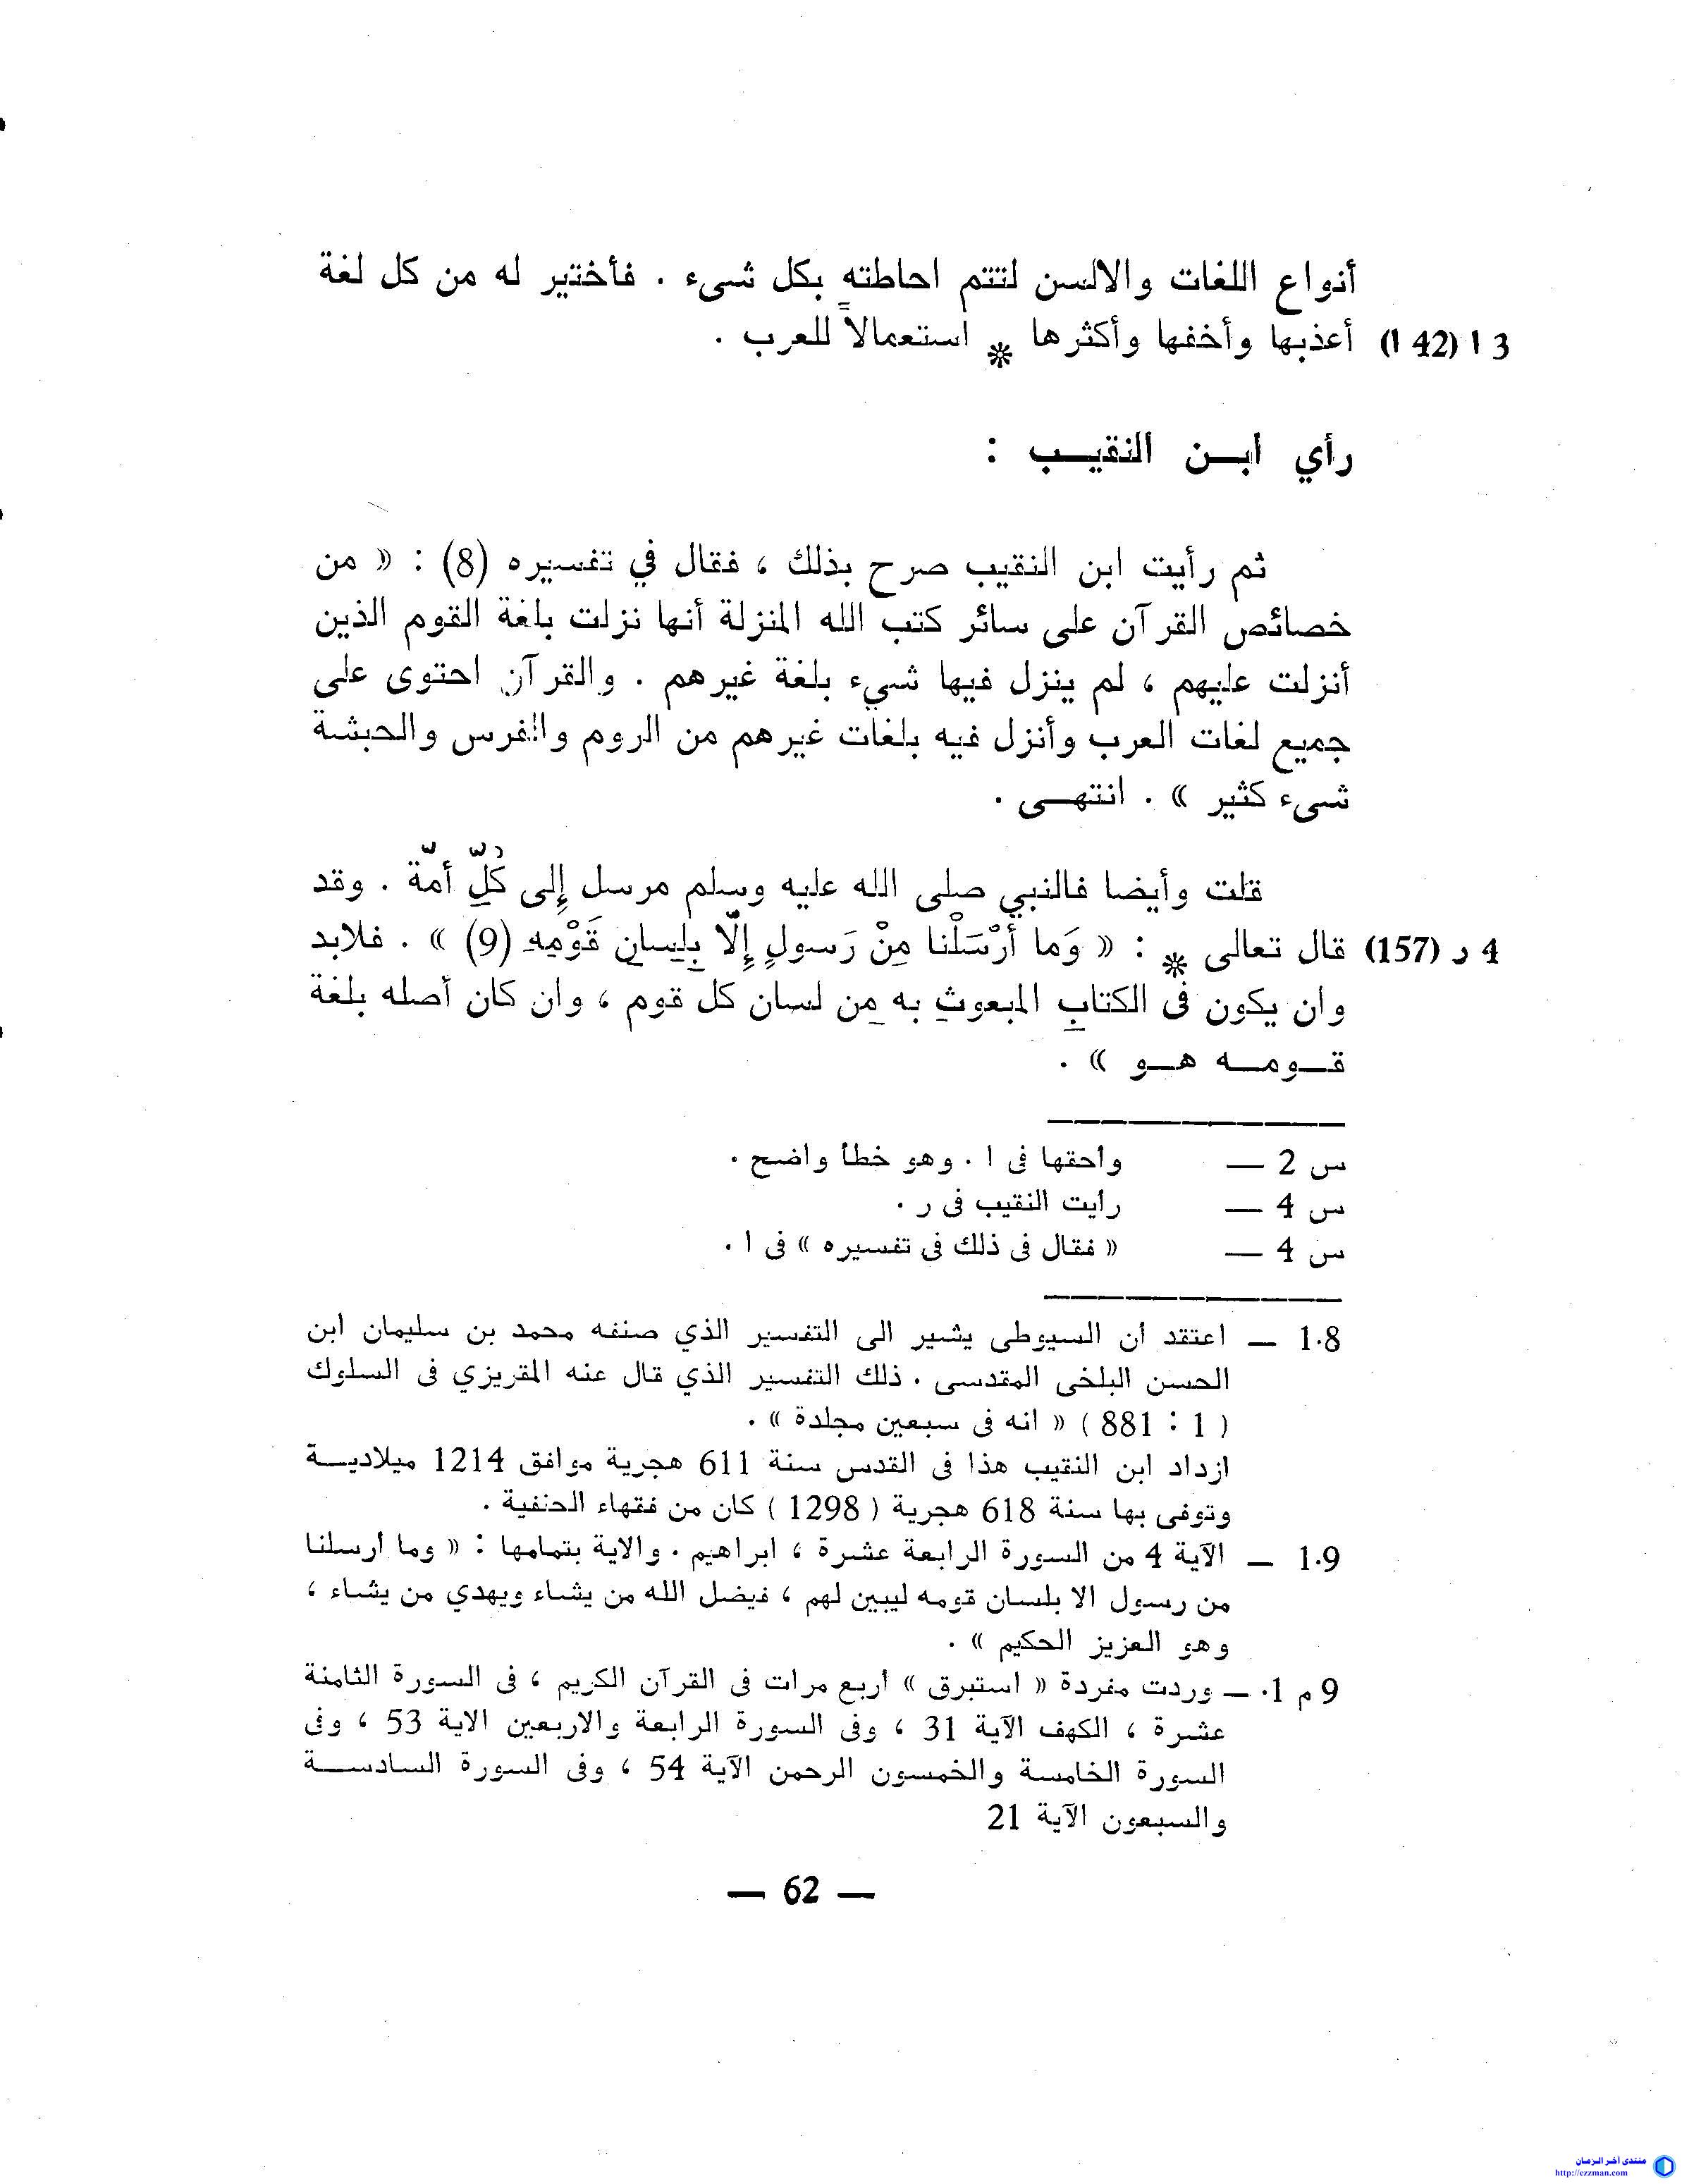 أنواع اللغات والالسن لتتم احاطته بكل شىء . فأختير له من كل لغة
3 ا (42 ا) أعذبها وأخفها وأكثرها * استعمالاً للعرب .
رأي ابـن النقيـب :
ثم رأيت ابن النقيب صرح بذلك ، فقال في تفسيره (8) : « من
خصائص القرآن على سائر كتب الله المنزلة أنها نزلت بلغة القوم الذين
أنزلت عليهم ، لم ينزل فيها شيء بلغة غيرهم . والقرآن احتوى على
جميع لغات العرب وأنزل فيه بلغات غيرهم من الروم والفرس والحبشة
شىء كثير » . انتهـى .
قلت وأيضا فالنبي صلى الله عليه وسلم مرسل إِلى كُلِّ أمّة . وقد
4 ر (157) قال تعالى * : « وَما أرْسَلْنا مِنْ رَسولٍ إِلّا بِلِسانِ قَوْمِهِ (9) » . فلابد
وان يكون فى الكتابِ المبعوثِ به مِن لسان كل قوم ، وان كان أصله بلغة
قـومـه هـو » .
س 2 — وأحقها فى ا . وهو خطأ واضح .
س 4 — رأيت النقيب فى ر .
س 4 — « فقال فى ذلك فى تفسيره » فى ا .
1.8 — اعتقد أن السيوطى يشير الى التفسير الذي صنفه محمد بن سليمان ابن
الحسن البلخى المقدسى . ذلك التفسير الذي قال عنه المقريزي فى السلوك
( 1 : 881 ) « انه فى سبعين مجلدة » .
ازداد ابن النقيب هذا فى القدس سنة 611 هجرية موافق 1214 ميلاديـة
وتوفى بها سنة 618 هجرية ( 1298 ) كان من فقهاء الحنفية .
1.9 — الآية 4 من السورة الرابعة عشرة ، ابراهيم . والاية بتمامها : « وما أرسلنا
من رسول الا بلسان قومه ليبين لهم ، فيضل الله من يشاء ويهدي من يشاء ،
وهو العزيز الحكيم » .
9 م 1. — وردت مفردة « استبرق » أربع مرات فى القرآن الكريم ، فى السورة الثامنة
عشرة ، الكهف الآية 31 ، وفى السورة الرابعة والاربعين الاية 53 ، وفى
السورة الخامسة والخمسون الرحمن الآية 54 ، وفى السورة السادسـة
والسبعون الآية 21
— 62 —
منتدى أخر الزمان
http://ezzman.com